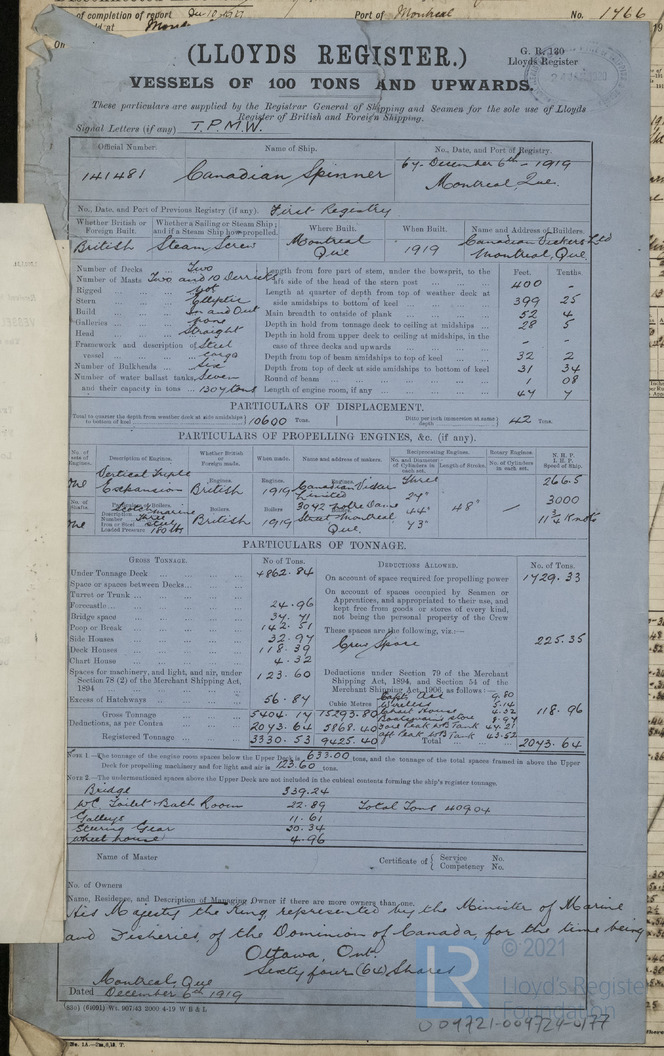 of completion of report Dec 10 1927 Port of Montreal No. 1466
(LLOYDS REGISTER.)
G. R. 130
Lloyds Register
VESSELS OF 100 TONS AND UPWARDS.
These particulars are supplied by the Registrar General of Shipping and Seamen for the sole use of Lloyds
Register of British and Foreign Shipping.
Signal Letters (if any) T.P.M.W.
Official Number Name of Ship. No., Date, and Port of Registry.
141481 Canadian Spinner 64. December 6th - 1919
Montreal, Que.
No., Date, and Port of Previous Registry (if any). First Registry
Whether British or Foreign Built. Whether a Sailing or Steam Ship; and if a Steam Ship how propelled. Where Built. When Built. Name and Address of Builders.
British Steam Screw Montreal Que 1919 Canadian Vickers Ltd Montreal, Que
Number of Decks Two
Number of Masts Two and 10 Derricks
Rigged
Stern Elliptic
Build In and Out
Galleries none
Head Straight
Framework and description of vessel Steel cargo
Number of Bulkheads Six
Number of water ballast tanks, Seven
and their capacity in tons 1304 tons
Feet. Tenths.
Length from fore part of stem, under the bowsprit, to the aft side of the head of the stern post 400 -
Length at quarter of depth from top of weather deck at side amidships to bottom of keel 399 25
Main breadth to outside of plank 52 4
Depth in hold from tonnage deck to ceiling at midships 28 5
Depth in hold from upper deck to ceiling at midships, in the case of three decks and upwards - -
Depth from top of beam amidships to top of keel 32 2
Depth from top of deck at side amidships to bottom of keel 31 34
Round of beam 1 08
Length of engine room, if any 47 7
PARTICULARS OF DISPLACEMENT.
Total to quarter the depth from weather deck at side amidships to bottom of keel 10600 Tons. Ditto per inch immersion at same depth 42 Tons.
PARTICULARS OF PROPELLING ENGINES, &c. (if any).
No. of sets of Engines. Description of Engines. Whether British or Foreign made. When made. Name and address of makers. Reciprocating Engines. Rotary Engines. N. H. P. I. H. P. Speed of Ship.
No. and Diameter of Cylinders in each set. Length of Stroke. No. of Cylinders in each set.
One Vertical Triple Expansion Engines. British Engines. 1919 Engines. Canadian Vickers Limited Three 27" 44" 73" 48" - 266.5
No. of Shafts. Boilers. Boilers. Boilers. 3000
One Description Scotch marine Number Three Iron or Steel steel Loaded Pressure 180 lbs British 1919 3042 Notre Dame Street Montreal Que. 11 3/4 Knots
PARTICULARS OF TONNAGE.
GROSS TONNAGE. No of Tons. DEDUCTIONS ALLOWED. No. of Tons.
Under Tonnage Deck 4862.84
Space or spaces between Decks
Turret or Trunk
Forecastle 24.96
Bridge space 34.71
Poop or Break 142.51
Side Houses 32.97
Deck Houses 118.39
Chart House 4.32
Spaces for machinery, and light, and air, under Section 78 (2) of the Merchant Shipping Act, 1894 123.60
Excess of Hatchways 56.84
Gross Tonnage 5404.14 15293.80
Deductions, as per Contra 2073.64 5868.40
Registered Tonnage 3330.53 9425.40
Cubic Metres
On account of space required for propelling power 1729.33
On account of spaces occupied by Seamen or Apprentices, and appropriated to their use, and kept free from goods or stores of every kind, not being the personal property of the Crew
These spaces are the following, viz.:—
Crew Space 225.35
Deductions under Section 79 of the Merchant Shipping Act, 1894, and Section 54 of the Merchant Shipping Act, 1906, as follows:—
Capts. Acc 9.80
Wireless 5.14
Wheel House 4.32
Boatswain's store 8.97
Fore Peak WB Tank 44.21
Aft Peak WB Tank 43.52
118.96
Total 2073.64
NOTE 1.—The tonnage of the engine room spaces below the Upper Deck is 633.00 tons, and the tonnage of the total spaces framed in above the Upper
Deck for propelling machinery and for light and air is 123.60 tons.
NOTE 2.—The undermentioned spaces above the Upper Deck are not included in the cubical contents forming the ship's register tonnage.
Bridge 339.24
WC Toilet Bath Room 22.89 Total Tons 409.04
Galleys 11.61
Steering Gear 30.34
Wheel house 4.96
Name of Master Certificate of { Service No. Competency No.
No. of Owners
Name, Residence, and Description of Managing Owner if there are more owners than one.
His Majesty the King represented by the Minister of Marine
and Fisheries of the Dominion of Canada for the time being
Ottawa, Ont.
Sixty four (64) Shares
Montreal, Que
Dated December 6th 1919
© 2021
LR
Lloyd's Register
Foundation
004721-004724-0177